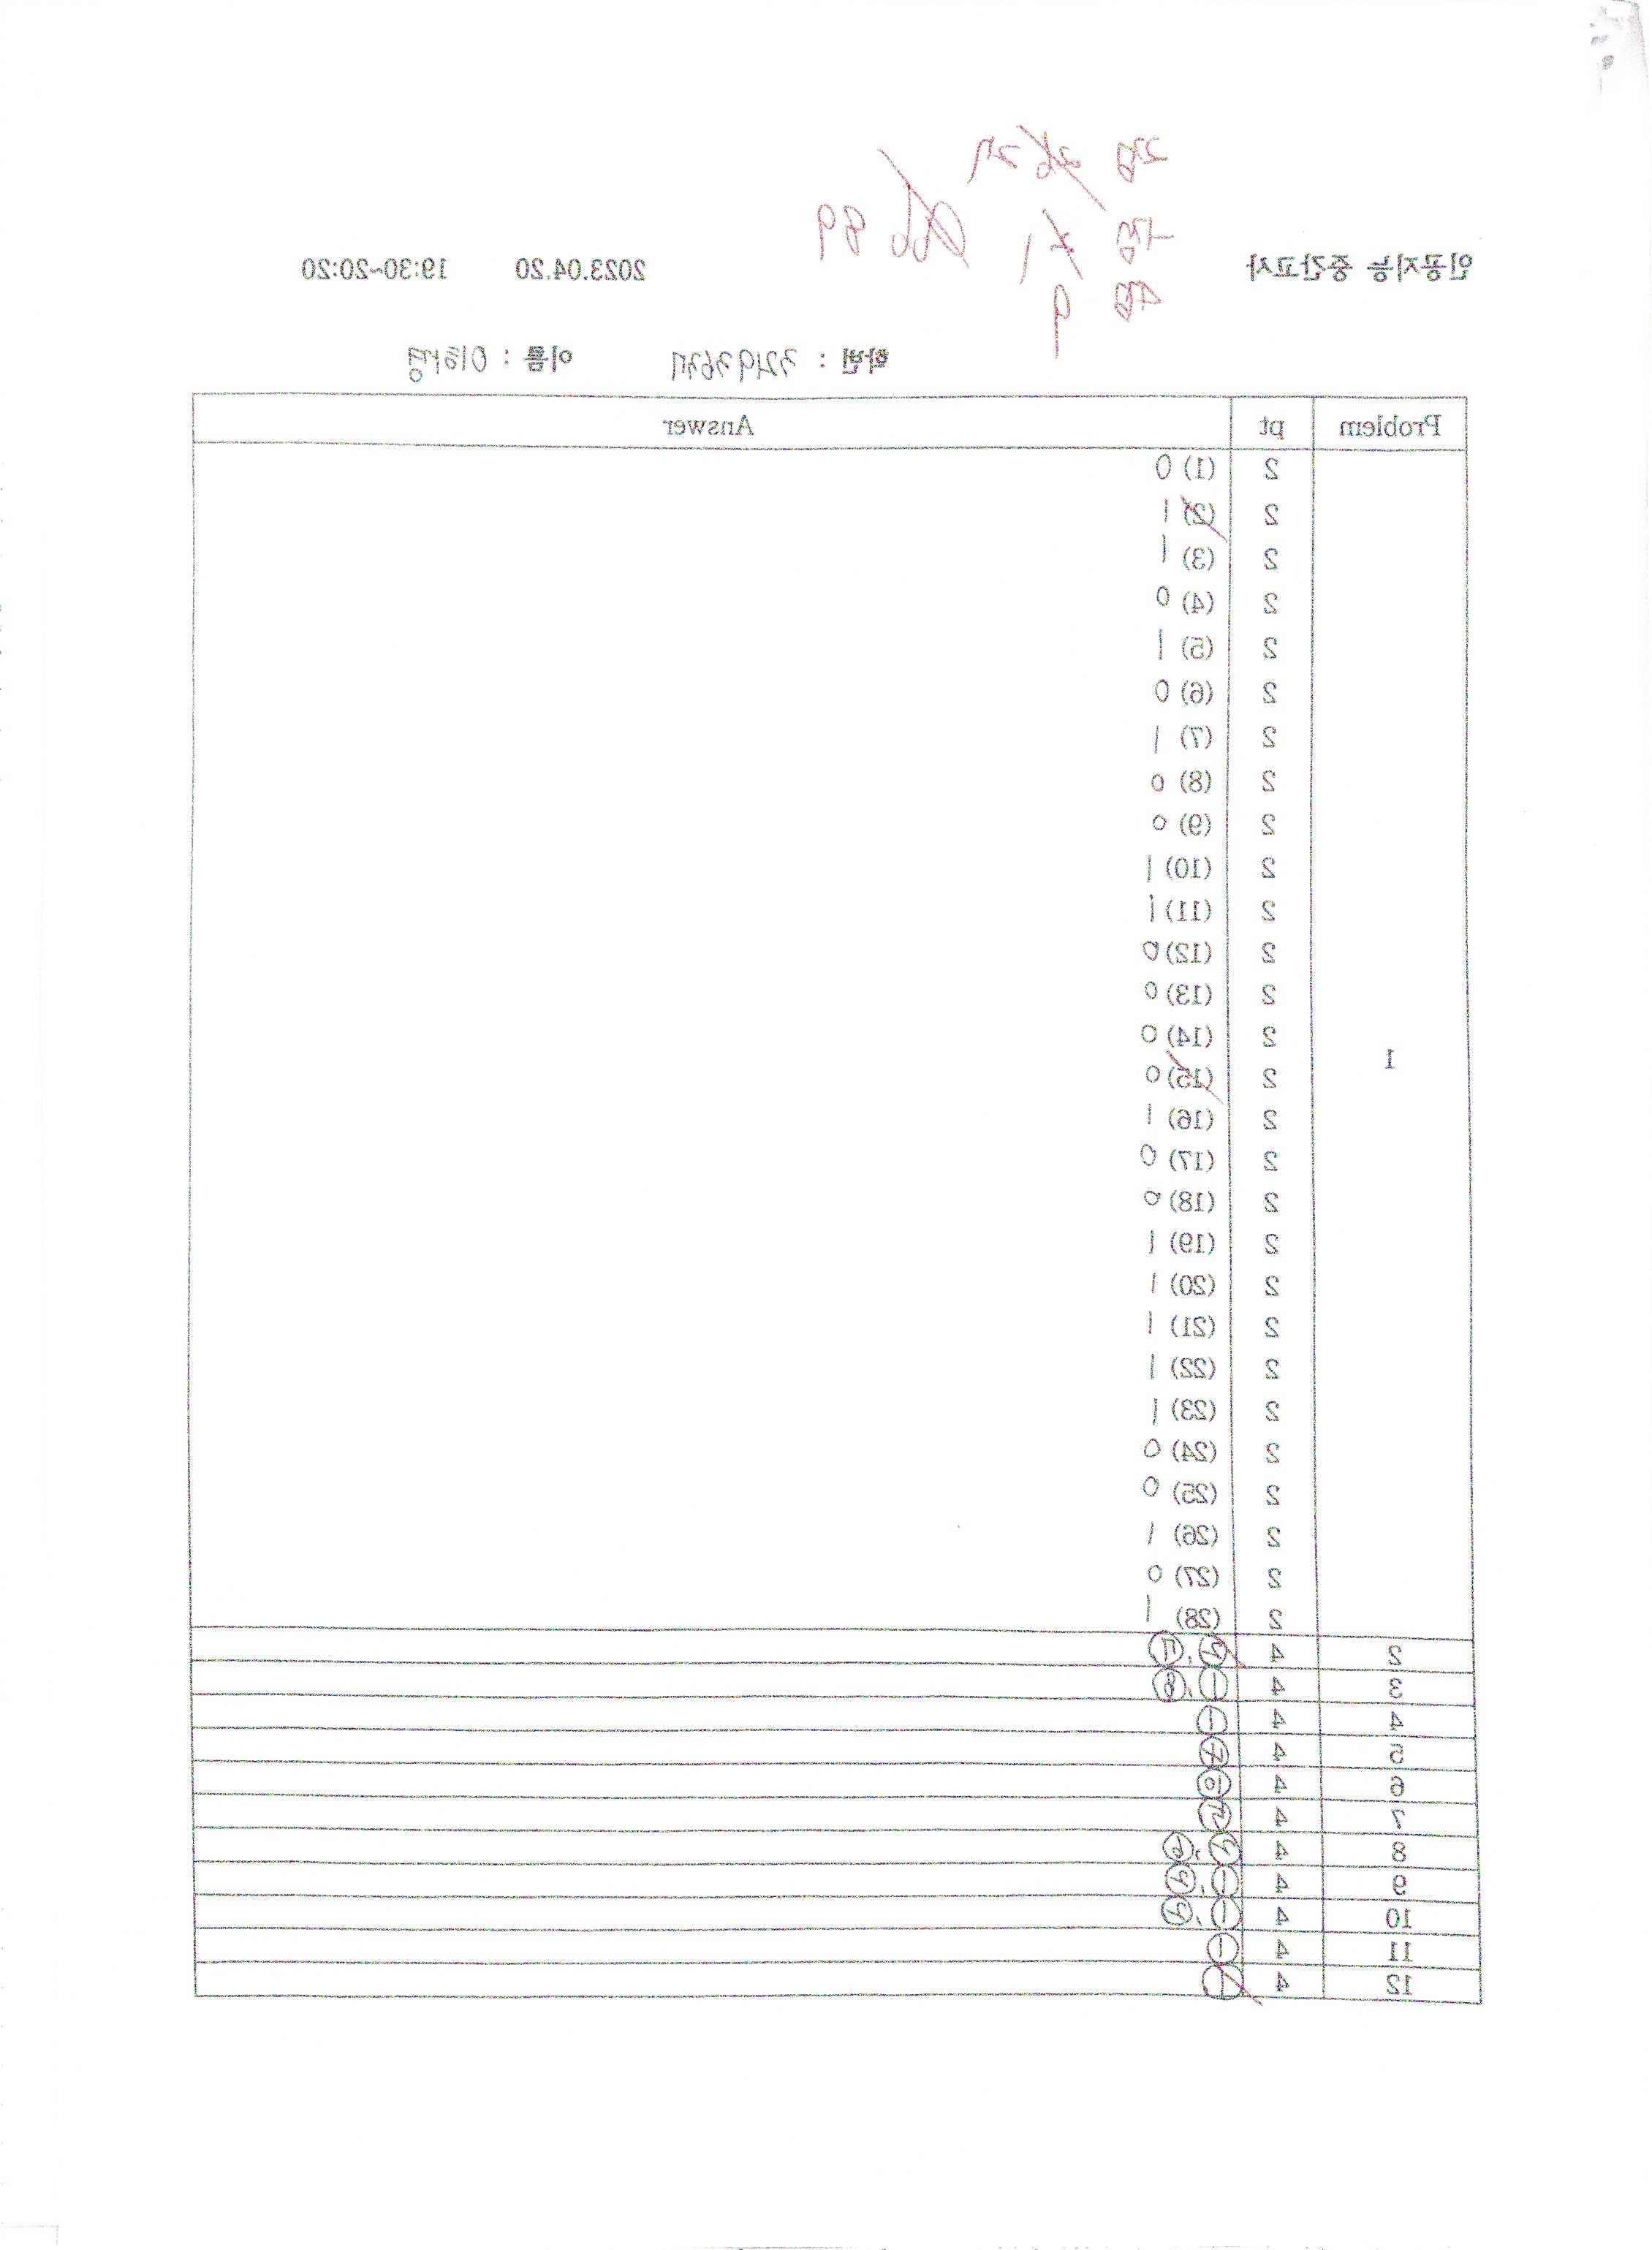 인공지능 중간고사 2023.04.20 19:30~20:20
89
학번 : 이름 : 이하영
Problem pt Answer
2 (1) 0
2 (2) 1
2 (3) 1
2 (4) 0
2 (5) 1
2 (6) 0
2 (7) 1
2 (8) 0
2 (9) 0
2 (10) 1
2 (11) 1
2 (12) 0
2 (13) 0
2 (14) 0
1 2 (15) 0
2 (16) 1
2 (17) 0
2 (18) 0
2 (19) 1
2 (20) 1
2 (21) 1
2 (22) 1
2 (23) 1
2 (24) 0
2 (25) 0
2 (26) 1
2 (27) 0
2 (28) 1
2 4
3 4 ①, ⑧
4 4 ①
5 4
6 4 ⑩
7 4
8 4
9 4 ①, ④
10 4 ①, ④
11 4 ①
12 4 ①